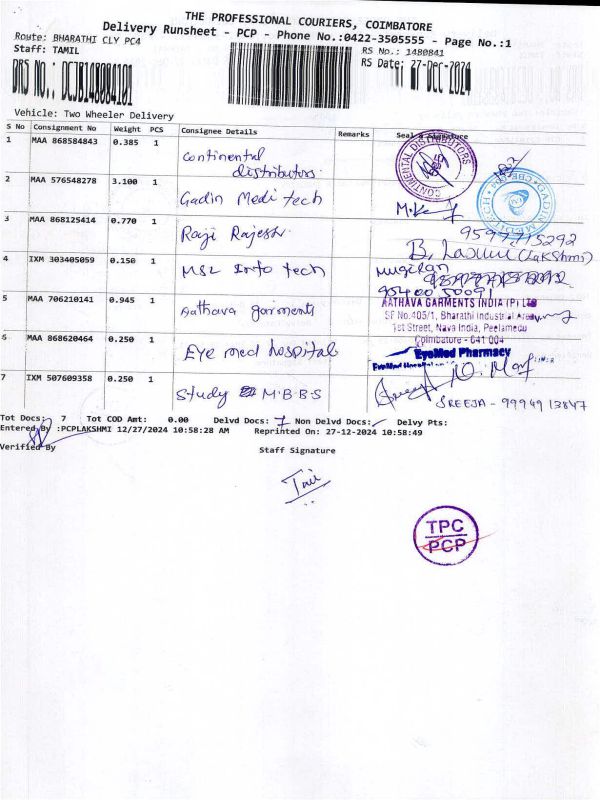 THE PROFESSIONAL COURIERS, COIMBATORE
Delivery Runsheet - PCP - Phone No.:0422-3505555 - Page No.:1
Route: BHARATHI CLY PC4
RS No.: 1480841
Staff: TAMIL
RS Date: 27-Dec-2024
DRS NO.: DCJB148084101
Vehicle: Two Wheeler Delivery
S No Consignment No Weight PCS Consignee Details Remarks Seal & Signature
1 MAA 868584843 0.385 1 Continental distributors. CONTINENTAL DISTRIBUTORS
2 MAA 576548278 3.100 1 Gadin Medi tech
3 MAA 868125414 0.770 1 Raji Rajesh. B. Laxmi (Lakshmi)
4 IXM 303405059 0.150 1 MSL Info tech Mugilan
5 MAA 706210141 0.945 1 Aathava garments
AATHAVA GARMENTS INDIA (P) LTD
SF No.405/1, Bharathi Industrial Area,
1st Street, Nava India, Peelamedu
Coimbatore - 641 004
6 MAA 868620464 0.250 1 Eye med hospital EyeMed Pharmacy
7 IXM 507609358 0.250 1 Study M.B.B.S
SREEJA - 9994913847
Tot Docs: 7 Tot COD Amt: 0.00 Delvd Docs: 7 Non Delvd Docs: Delvy Pts:
Entered By :PCPLAKSHMI 12/27/2024 10:58:28 AM Reprinted On: 27-12-2024 10:58:49
Verified By
Staff Signature
TPC
PCP